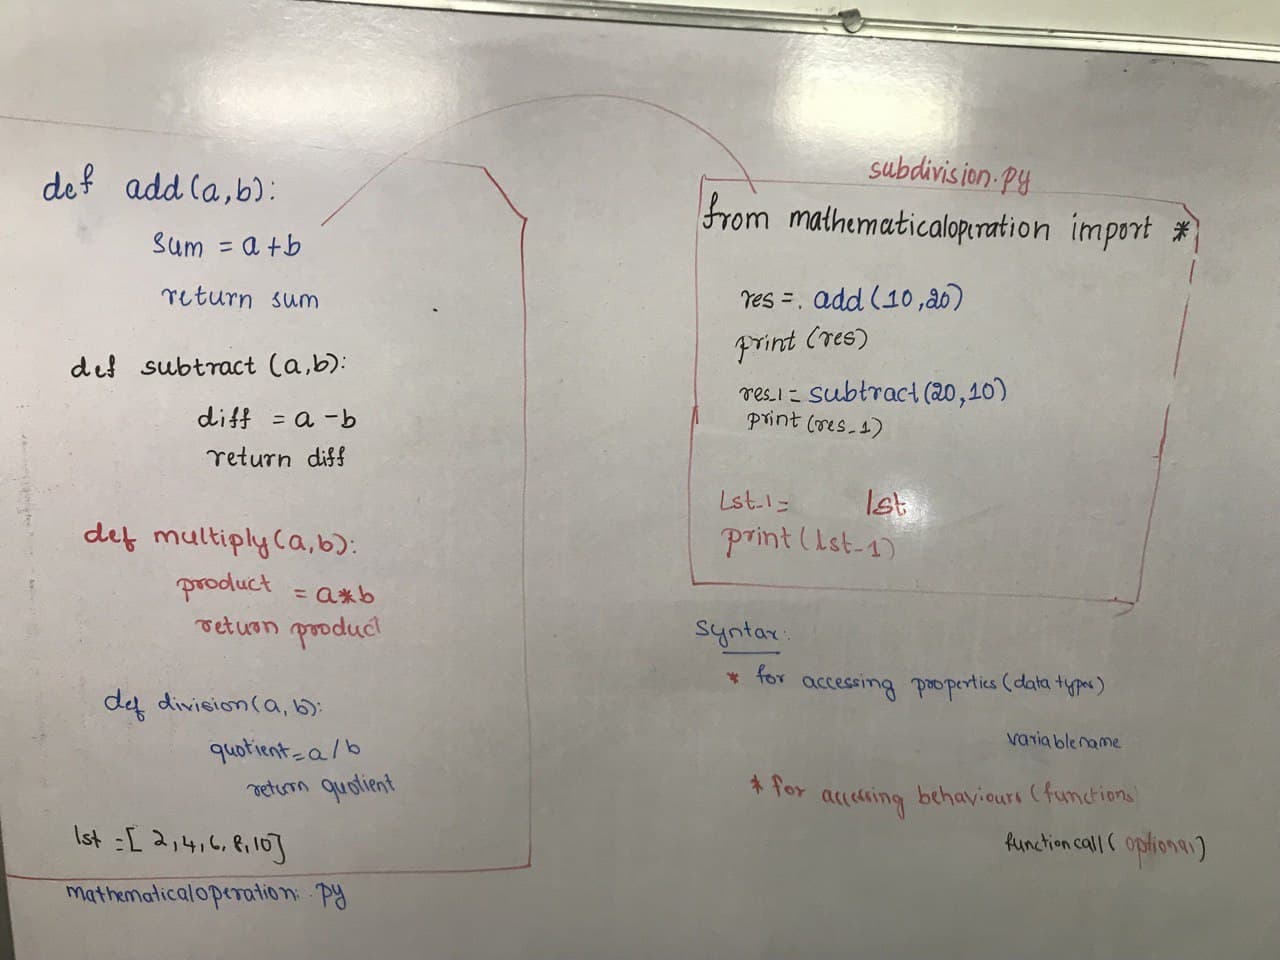 def add(a,b):
sum = a+b
return sum
def subtract (a,b):
diff = a-b
return diff
def multiply(a,b):
product = a*b
return product
def division(a,b):
quotient = a/b
return quotient
lst = [ 2,4,6,8,10]
mathematicaloperation: .py
subdivision.py
from mathematicaloperation import *
res =. add(10,20)
print (res)
res_1 = subtract(20,10)
print (res_1)
Lst_1 = lst
print(lst_1)
Syntax:
* for accessing properties (data types)
variablename
* for accessing behaviours (functions
functioncall( optional)